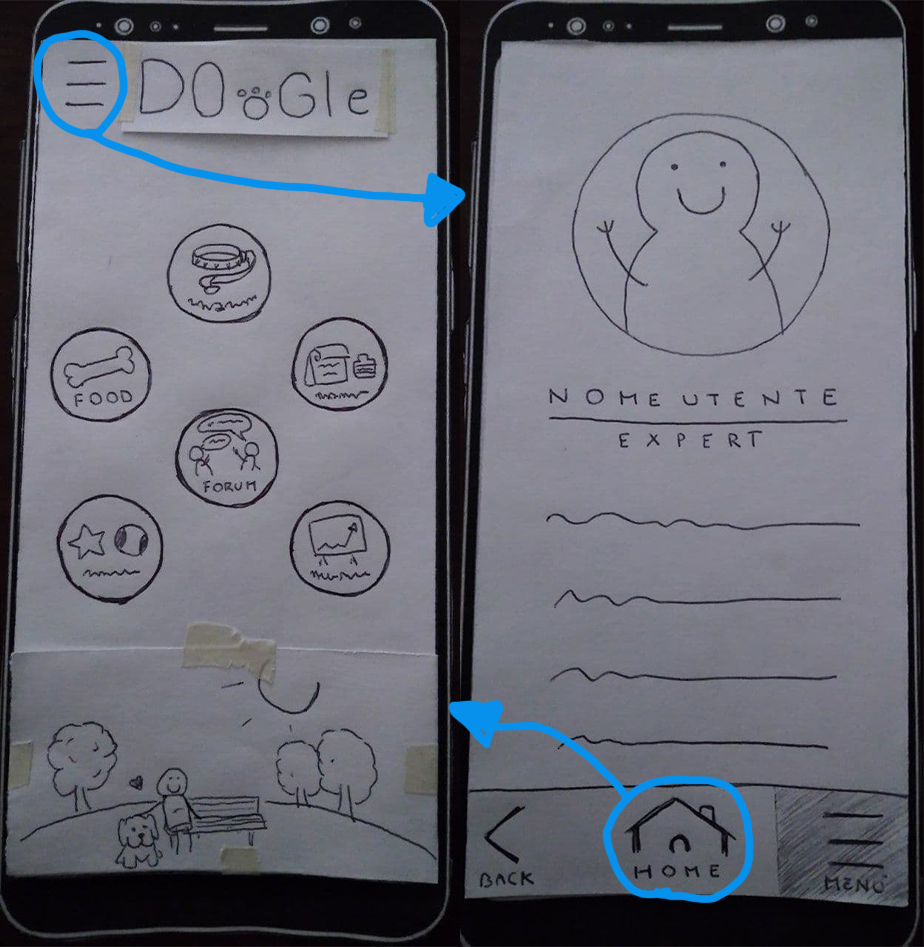 DOGle
FOOD
FORUM
NOME UTENTE
EXPERT
BACK
HOME
MENÙ